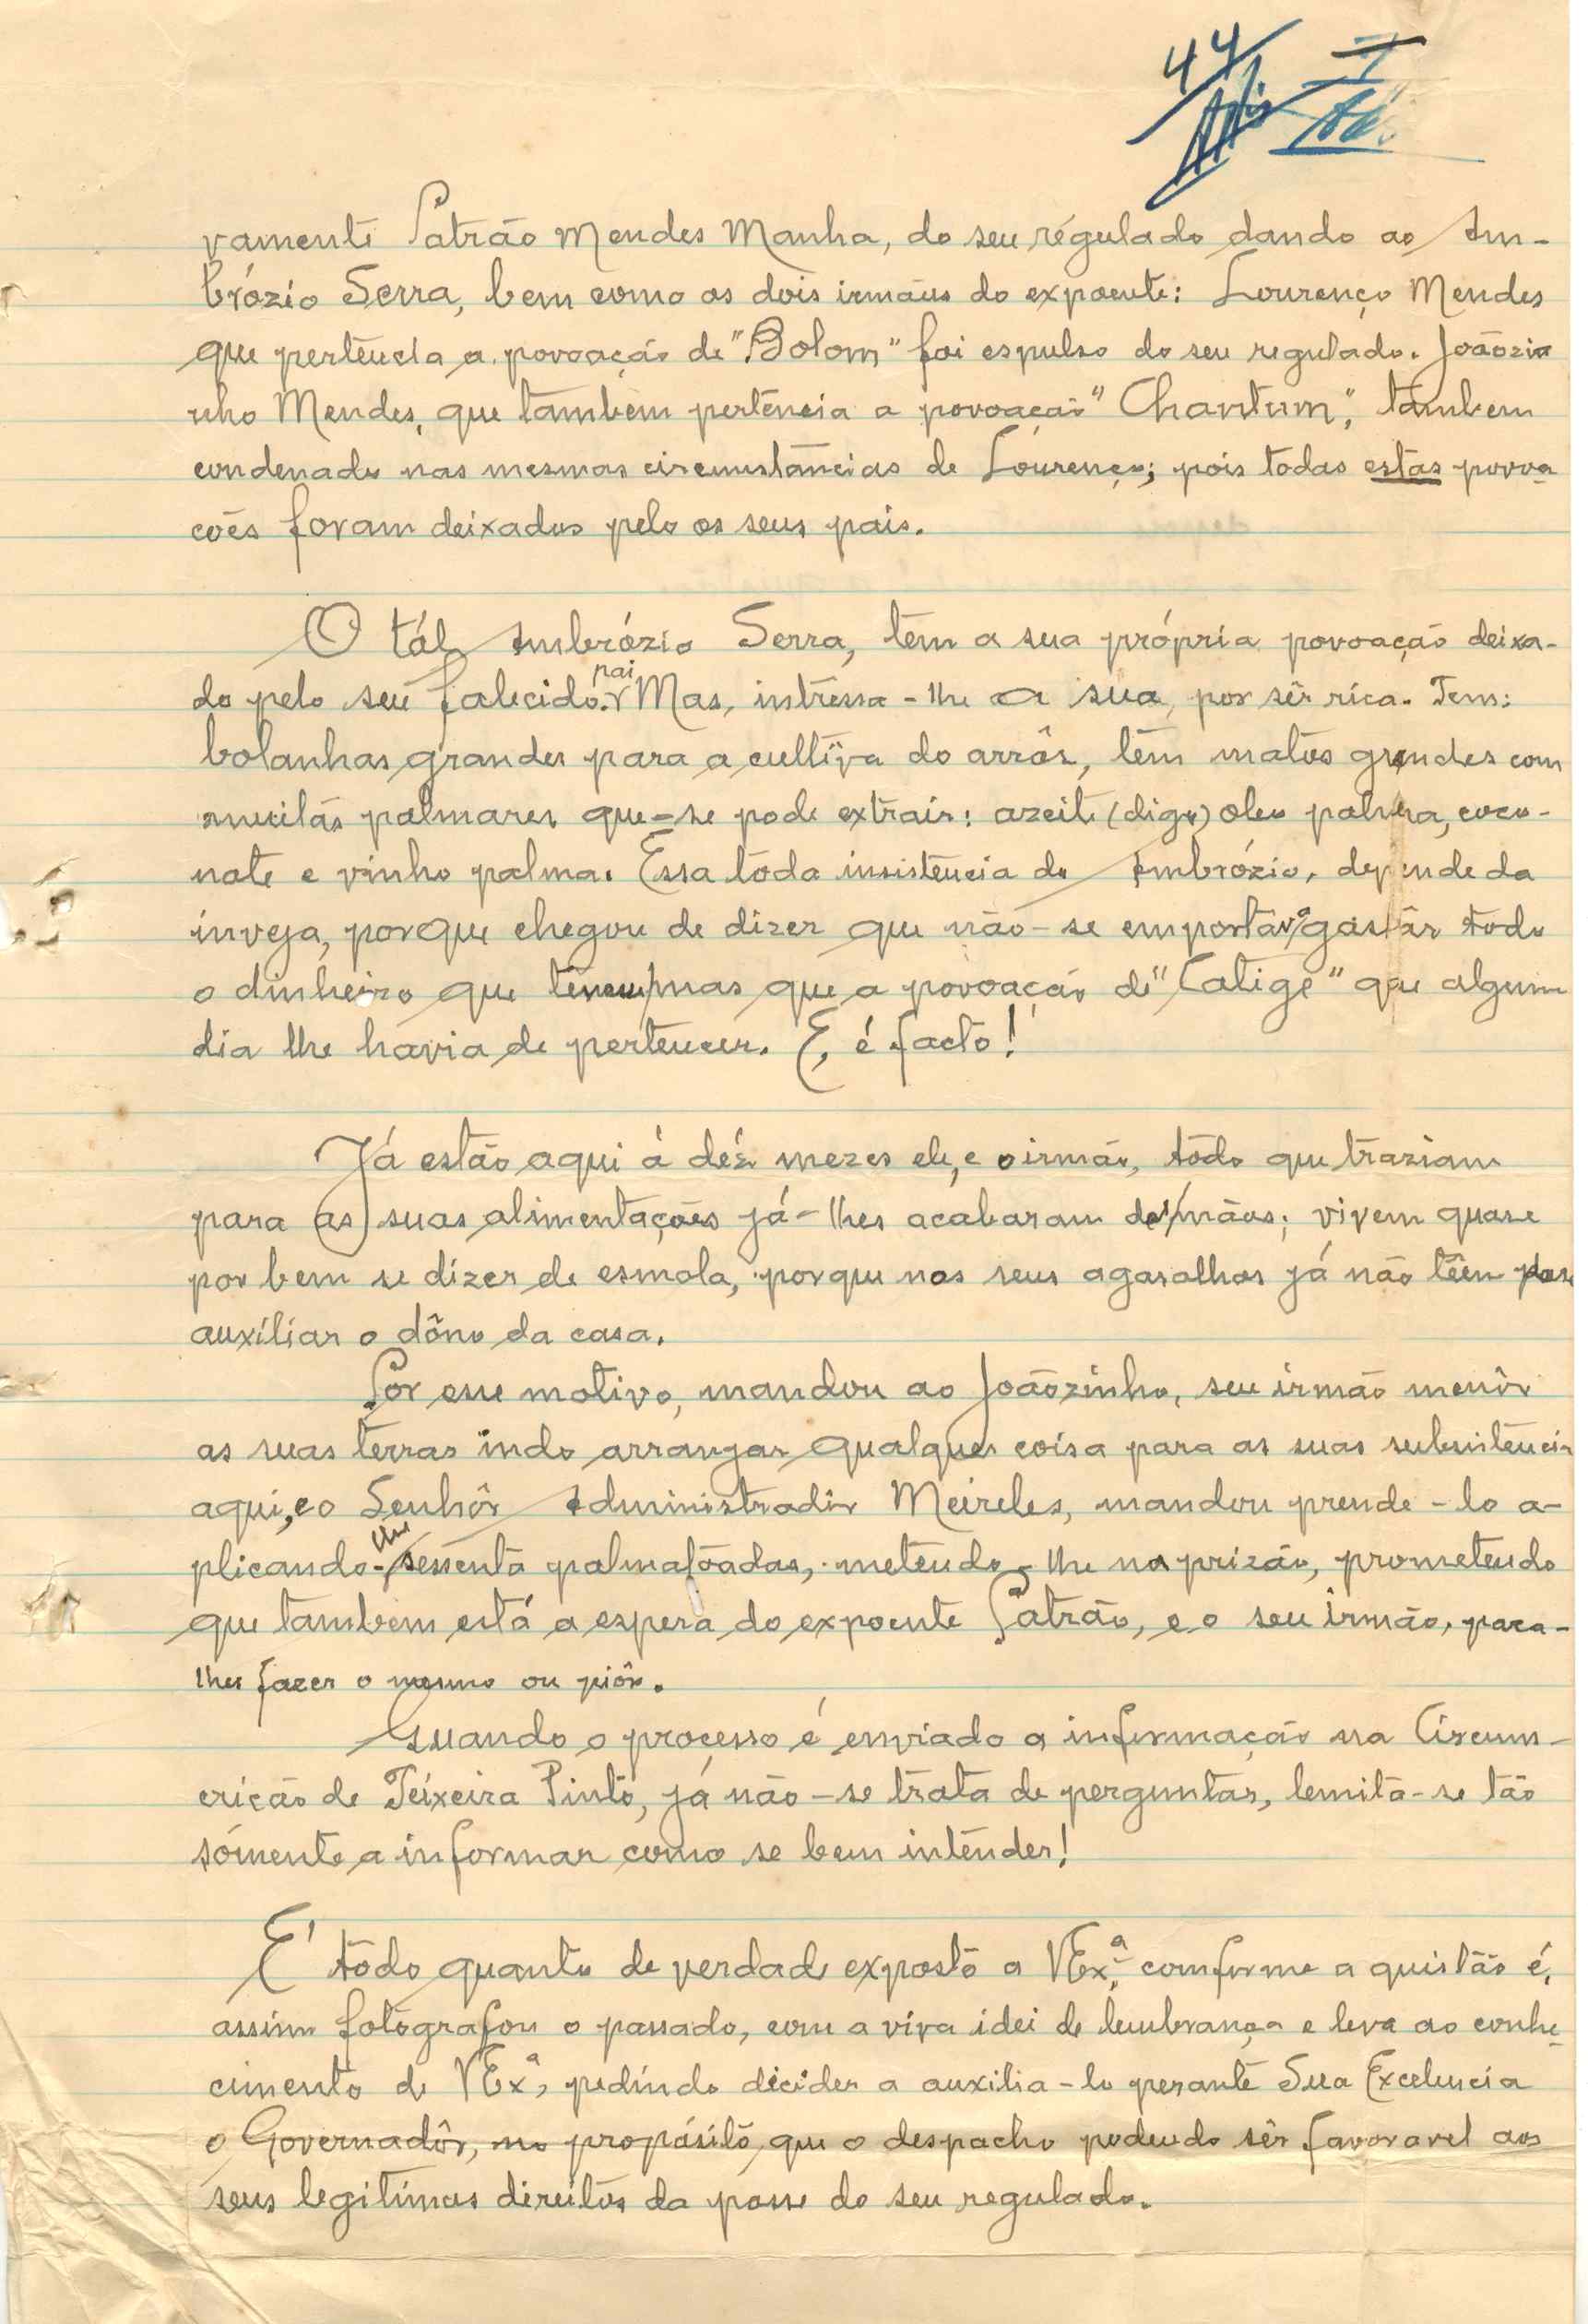 44
vamente Patrão Mendes Manha, do seu régulado dando ao Am-
brózio Serra, bem como os dois irmãus do expoente: Lourenço Mendes
que pertência a povoação de "Bolom" foi espulso do seu regulado. Joãozi
nho Mendes, que tambem pertência a povoação "Chantum", tambem
condenado nas mesmas circumstâncias de Lourenço; pois todas estas povoa
coēs foram deixados pelo os seus pais.
O tál Ambrózio Serra, tem a sua própria povoação deixa-
do pelo seu falecido pai. Mas, intressa-lhe a sua, por sêr rica. Tem:
bolanhas grandes para a cultiva do arrôz, têm matos grandes com
muitás palmares que-se pode extrair: azeite (digo) oleo palma, coco-
note e vinho palma. Essa toda insistência do Ambrózio, depende da
inveja, porque chegou de dizer que não-se emportáva gastár todo
o dinheiro que mas que a povoação de "Catigé" que algum
dia lhe havia de pertencer. E, é facto!
Já estão aqui á déz mezes ele, e o irmão, tôdo que traziam
para (as) suas alimentações já-lhes acabaram das mãos; vivem quase
por bem se dizer de esmola, porque nos seus agasalhos já não têm para
auxíliar o dôno da casa.
Por esse motivo, mandou ao Joãozinho, seu irmão menôr
as suas terras indo arranjar qualquer coisa para as suas subsistência
aqui, e o Senhôr Administradôr Meireles, mandou prende-lo a-
plicando-lhe sessenta palmatōadas, metendo-lhe na prizão, prometendo
que tambem está a espera do expoente Patrão, e o seu irmão, para-
lhes fazer o mesmo ou piôr.
Quando o processo é enviado a informação na Circuns-
crição de Teixeira Pinto, já não-se trata de perguntar, lemita-se tão
sómente a informar como se bem intênder!
E' tôdo quanto de verdade exposto a VExª, comforme a quistão é,
assim fotografou o passado, com a viva idei de lembrança e leva ao conhe
cimento de VExª, pedindo decider a auxilia-lo perante Sua Excelencia
o Governadôr, no propósito que o despacho podendo sêr favoravel aos
seus legitimos direitos da posse do seu regulado.